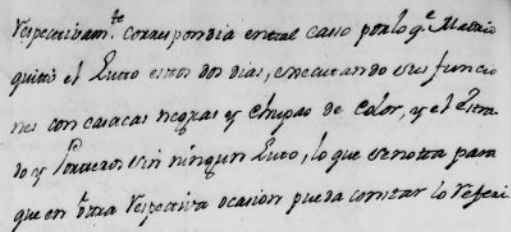 respectivam.te correspondia en tal caso por lo q.e Madrid
quitó el Luto estos dos dias, executando sus funcio
nes con casacas negras y chupas de color, y el Estra
do y Porteros sin ningun Luto, lo que se nota para
que en otra respectiva ocasion pueda constar lo referi